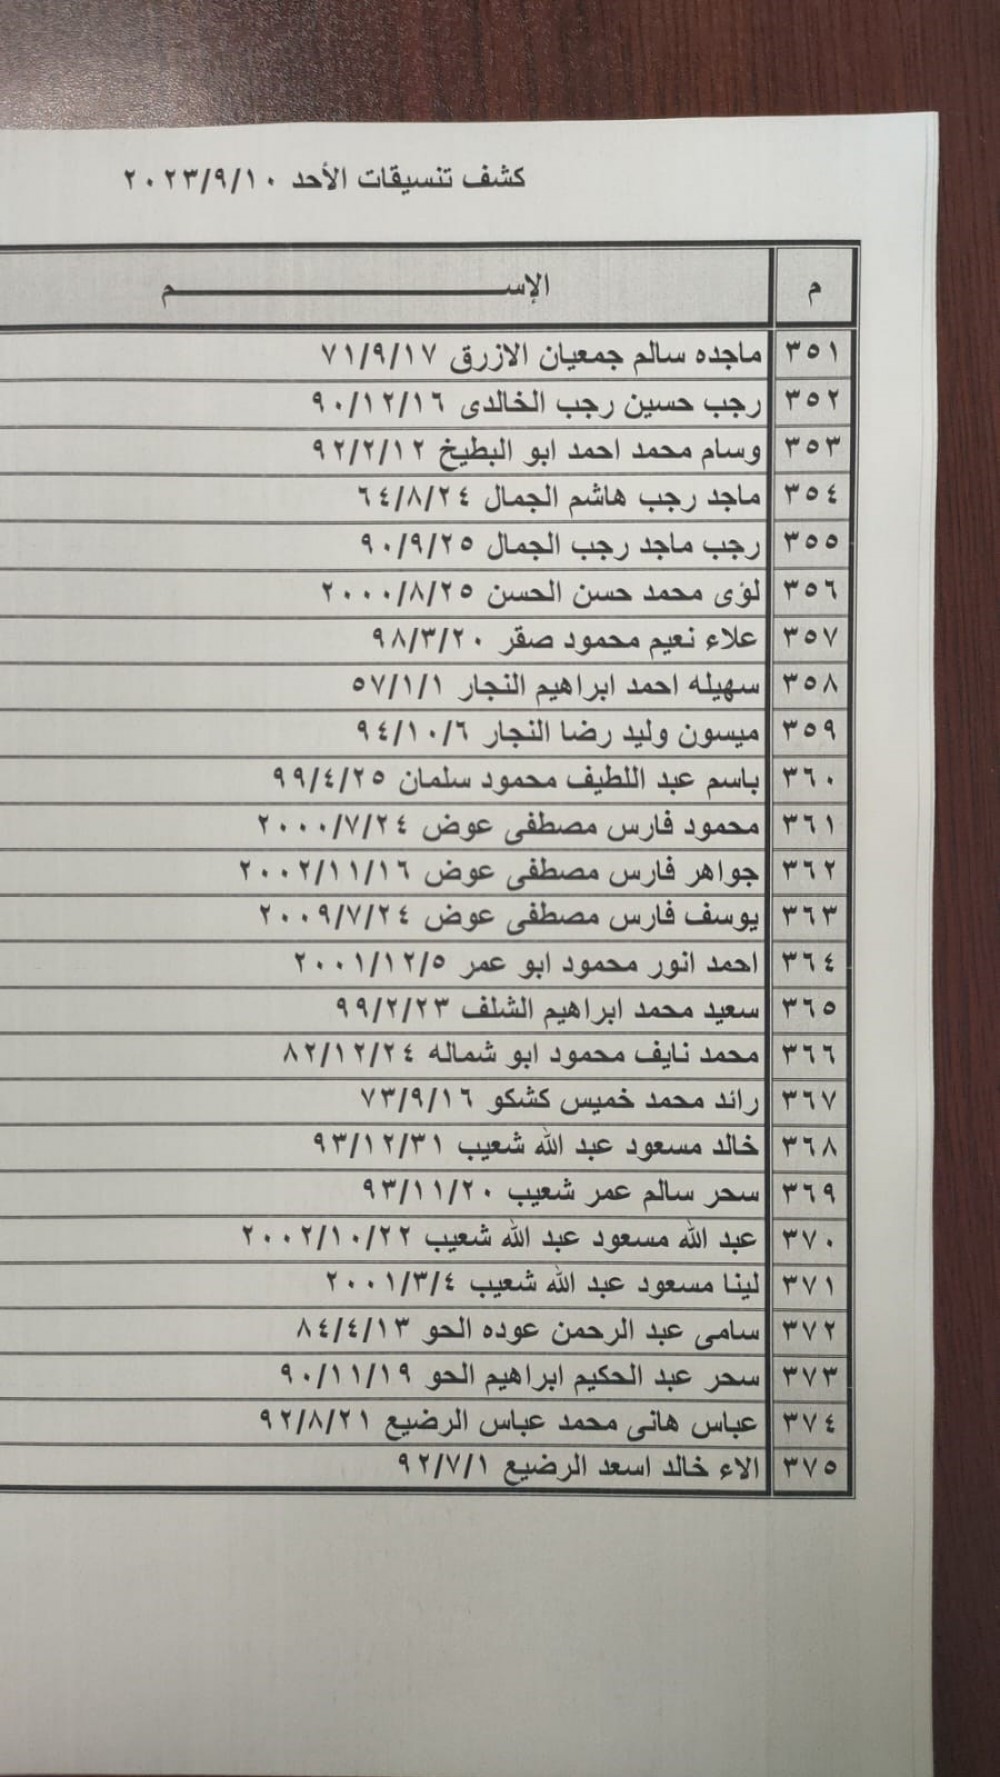 كشف تنسيقات الأحد ٢٠٢٣/٩/١٠
م الإســـــــــــــــــــــــــــــم
٣٥١ ماجده سالم جمعيان الازرق ٧١/٩/١٧
٣٥٢ رجب حسين رجب الخالدى ٩٠/١٢/١٦
٣٥٣ وسام محمد احمد ابو البطيخ ٩٢/٢/١٢
٣٥٤ ماجد رجب هاشم الجمال ٦٤/٨/٢٤
٣٥٥ رجب ماجد رجب الجمال ٩٠/٩/٢٥
٣٥٦ لؤى محمد حسن الحسن ٢٠٠٠/٨/٢٥
٣٥٧ علاء نعيم محمود صقر ٩٨/٣/٢٠
٣٥٨ سهيله احمد ابراهيم النجار ٥٧/١/١
٣٥٩ ميسون وليد رضا النجار ٩٤/١٠/٦
٣٦٠ باسم عبد اللطيف محمود سلمان ٩٩/٤/٢٥
٣٦١ محمود فارس مصطفى عوض ٢٠٠٠/٧/٢٤
٣٦٢ جواهر فارس مصطفى عوض ٢٠٠٢/١١/١٦
٣٦٣ يوسف فارس مصطفى عوض ٢٠٠٩/٧/٢٤
٣٦٤ احمد انور محمود ابو عمر ٢٠٠١/١٢/٥
٣٦٥ سعيد محمد ابراهيم الشلف ٩٩/٢/٢٣
٣٦٦ محمد نايف محمود ابو شماله ٨٢/١٢/٢٤
٣٦٧ رائد محمد خميس كشكو ٧٣/٩/١٦
٣٦٨ خالد مسعود عبد الله شعيب ٩٣/١٢/٣١
٣٦٩ سحر سالم عمر شعيب ٩٣/١١/٢٠
٣٧٠ عبد الله مسعود عبد الله شعيب ٢٠٠٢/١٠/٢٢
٣٧١ لينا مسعود عبد الله شعيب ٢٠٠١/٣/٤
٣٧٢ سامى عبد الرحمن عوده الحو ٨٤/٤/١٣
٣٧٣ سحر عبد الحكيم ابراهيم الحو ٩٠/١١/١٩
٣٧٤ عباس هانى محمد عباس الرضيع ٩٢/٨/٢١
٣٧٥ الاء خالد اسعد الرضيع ٩٢/٧/١